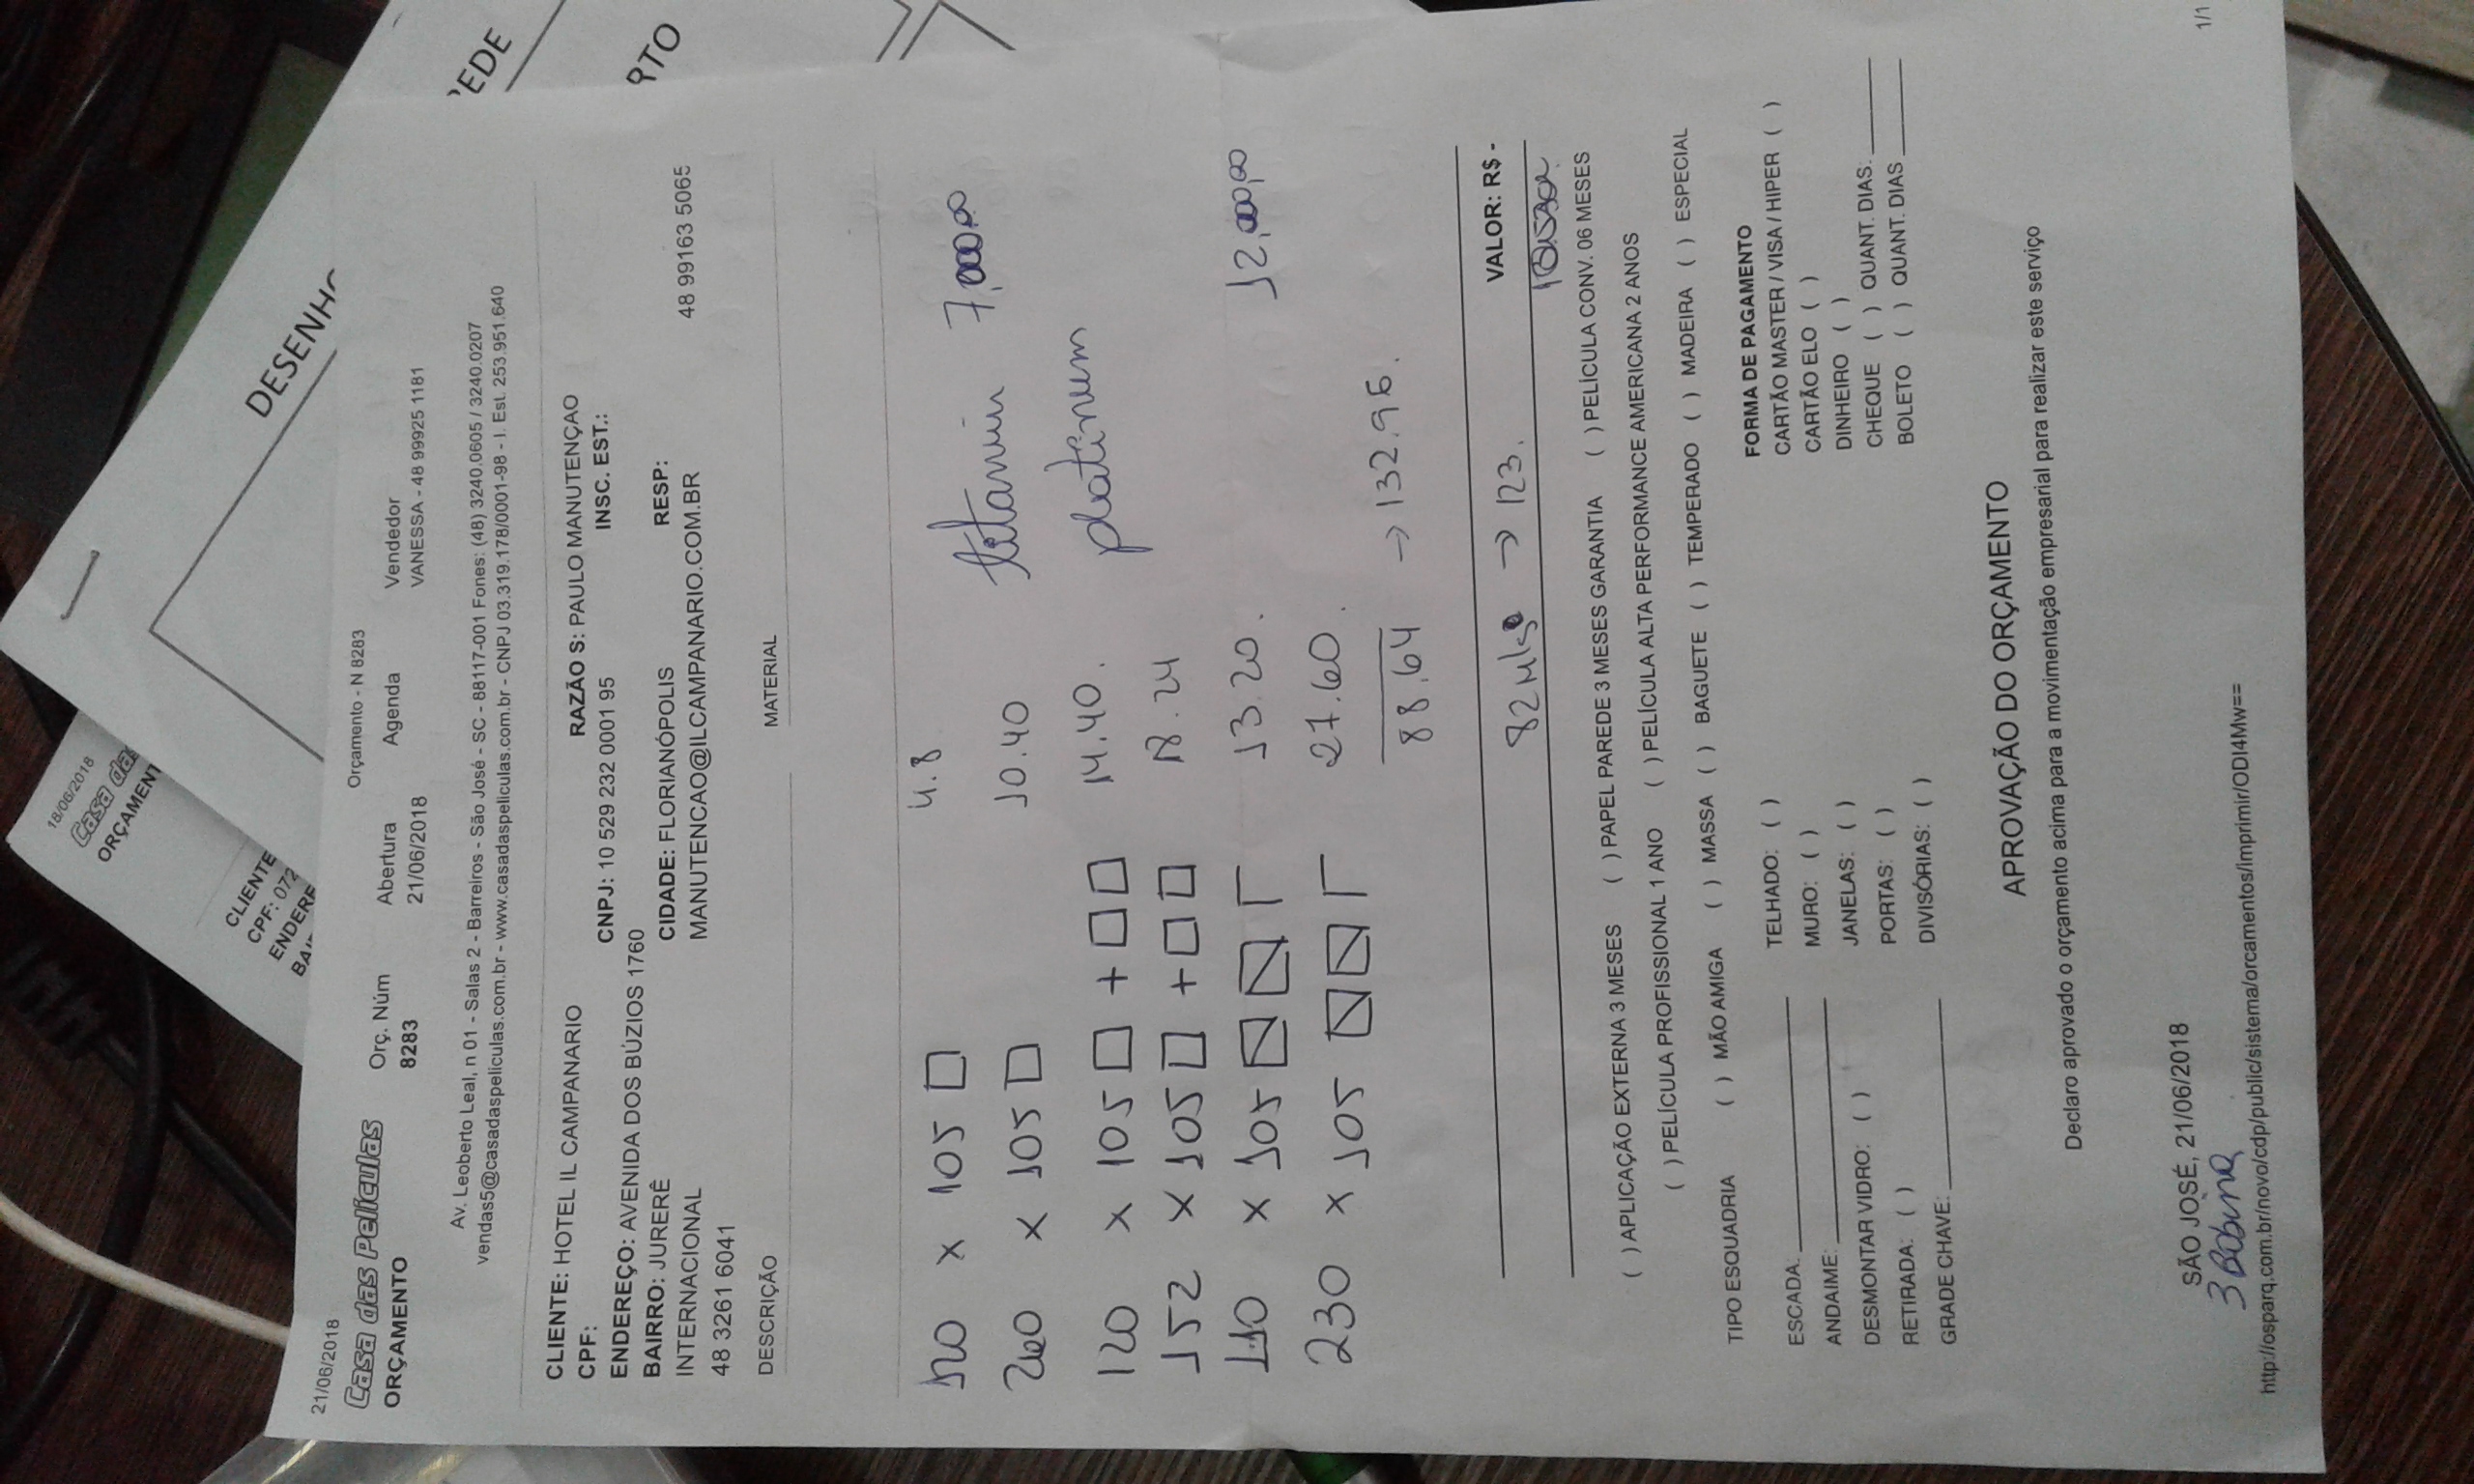 DESENH
REDE
RTO
18/06/2018
Casa das
ORÇAMENT
CLIENTE
CPF: 072
ENDERE
BAI
21/06/2018
Orçamento - N 8283
Casa das Películas
ORÇAMENTO
Orç. Núm
8283
Abertura
21/06/2018
Agenda
Vendedor
VANESSA - 48 99925 1181
Av. Leoberto Leal, n 01 - Salas 2 - Barreiros - São José - SC - 88117-001 Fones: (48) 3240.0605 / 3240.0207
vendas5@casadaspeliculas.com.br - www.casadaspeliculas.com.br - CNPJ 03.319.178/0001-98 - I. Est. 253.951.640
CLIENTE: HOTEL IL CAMPANARIO RAZÃO S: PAULO MANUTENÇAO
CPF: CNPJ: 10 529 232 0001 95 INSC. EST.:
ENDEREÇO: AVENIDA DOS BÚZIOS 1760
BAIRRO: JURERÊ CIDADE: FLORIANÓPOLIS RESP:
INTERNACIONAL MANUTENCAO@ILCAMPANARIO.COM.BR 48 99163 5065
48 3261 6041
DESCRIÇÃO MATERIAL
120 x 105 4.8 titanium 7,000,00
260 x 105 10.40
120 x 105 + 14.40. platinum
152 x 105 + 18.24
110 x 105 13.20. 12.000,00
230 x 105 27.60.
88.64 → 132.96.
VALOR: R$ -
82 → 123.
( ) APLICAÇÃO EXTERNA 3 MESES ( ) PAPEL PAREDE 3 MESES GARANTIA ( ) PELÍCULA CONV. 06 MESES
( ) PELÍCULA PROFISSIONAL 1 ANO ( ) PELÍCULA ALTA PERFORMANCE AMERICANA 2 ANOS
TIPO ESQUADRIA ( ) MÃO AMIGA ( ) MASSA ( ) BAGUETE ( ) TEMPERADO ( ) MADEIRA ( ) ESPECIAL
ESCADA: TELHADO: ( ) FORMA DE PAGAMENTO
ANDAIME: MURO: ( ) CARTÃO MASTER / VISA / HIPER ( )
DESMONTAR VIDRO: ( ) JANELAS: ( ) CARTÃO ELO ( )
RETIRADA: ( ) PORTAS: ( ) DINHEIRO ( )
GRADE CHAVE: DIVISÓRIAS: ( ) CHEQUE ( ) QUANT. DIAS:
BOLETO ( ) QUANT. DIAS
APROVAÇÃO DO ORÇAMENTO
Declaro aprovado o orçamento acima para a movimentação empresarial para realizar este serviço
SÃO JOSÉ, 21/06/2018
3 Bobina
http://osparq.com.br/novo/cdp/public/sistema/orcamentos/imprimir/ODI4Mw==
1/1